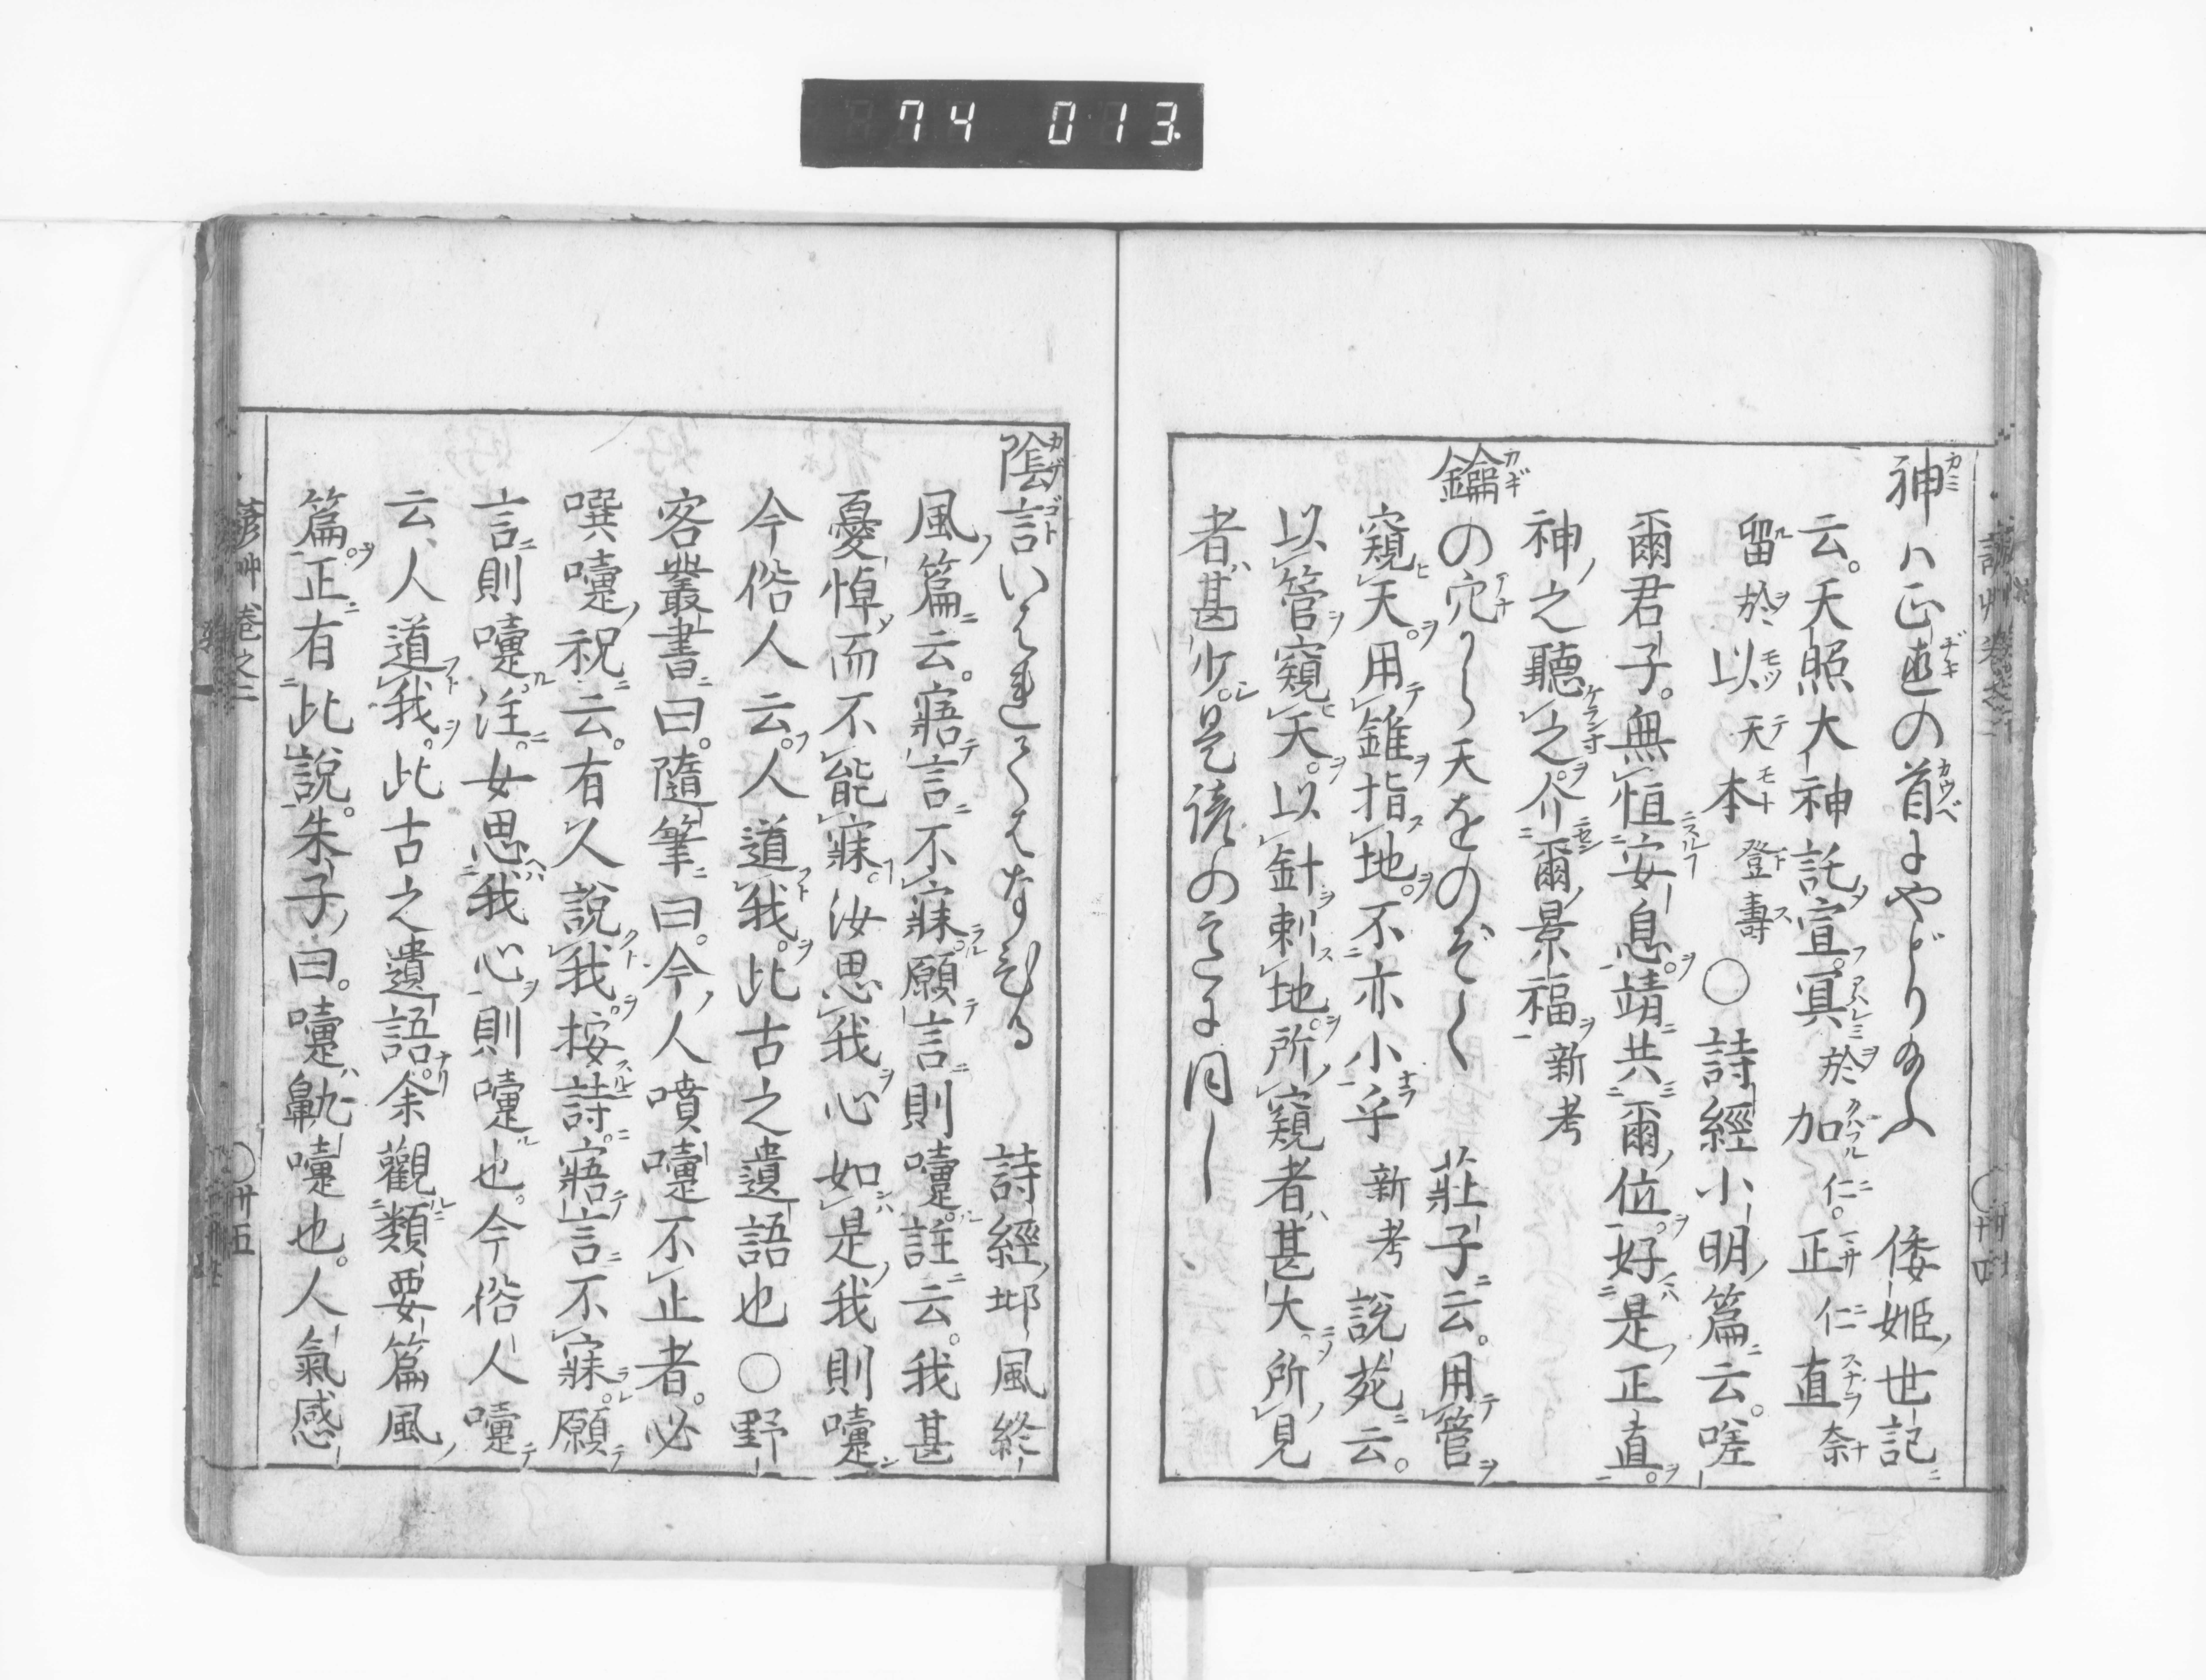 74 013
神ハ正直の首にやどり給ふ 倭姫世記
云。天照大神託宣。冥於加仁。正仁直奈
留於以天本登壽○詩經小明篇云。嗟
爾君子。無恒安息。靖共爾位。好是正直。
神之聽之。介爾景福 新考
鑰の穴から天をのぞく 莊子云。用管
窺天。用錐指地。不亦小乎 新考 說苑云。
以管窺天。以針刺地。所窺者甚大。所見
者甚少。是諺のこゝろに同し
陰言いはれてくさめする 詩經邶風終
風篇云。寤言不寐。願言則嚔。註云。我甚
憂悼而不能寐。汝思我心如是。我則嚔
今俗人云。人道我。此古之遺語也○野
客叢書曰。隨筆曰。今人噴嚔不止者。必
噀嚔祝云。有人說我。按詩。寤言不寐。願
言則嚔。注。女思我心則嚔也。今俗人嚔
云人道我。此古之遺語。余觀類要篇風
篇正有此說。朱子曰。嚔鼽嚔也。人氣感
諺艸卷之二
○卅五